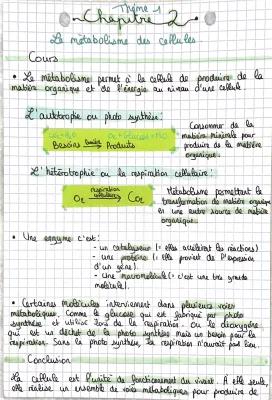 Thème 1
Chapitre 2
Le métabolisme des cellules
Cours
• Le métabolisme permet à la cellule de produire de la
matière organique et de l'énergie au niveau d'une cellule.
L'autotrophie ou photo synthèse :
CO2+H2O O2+Glucose+H2O
Besoins Produits
Consommer de la
matière minérale pour
produire de la matière
organique.
L'hétérotrophie ou la respiration cellulaire :
respiration
cellulaire
O2 → CO2
Métabolisme permettant la
transformation de matière organique
et une autre source de matière
organique.
• Une enzyme c'est :
- un catalyseur (= elles accélèrent les réactions)
- une protéine (= elle provient de l'expression
d'un gène).
- Une macromolécule (= c'est une très grande
molécule).
• Certaines molécules interviennent dans plusieurs voies
métaboliques. Comme le glucose qui est fabriqué par photo
synthèse et utilisé lors de la respiration. Ou le dioxygène
qui est un déchet de la photo synthèse mais un besoin pour la
respiration. Sans la photo synthèse, la respiration n'aurait pas lieu.
Conclusion
La cellule est l'unité de fonctionnement du vivant. A elle seule,
elle réalise un ensemble de voies métaboliques pour produire de